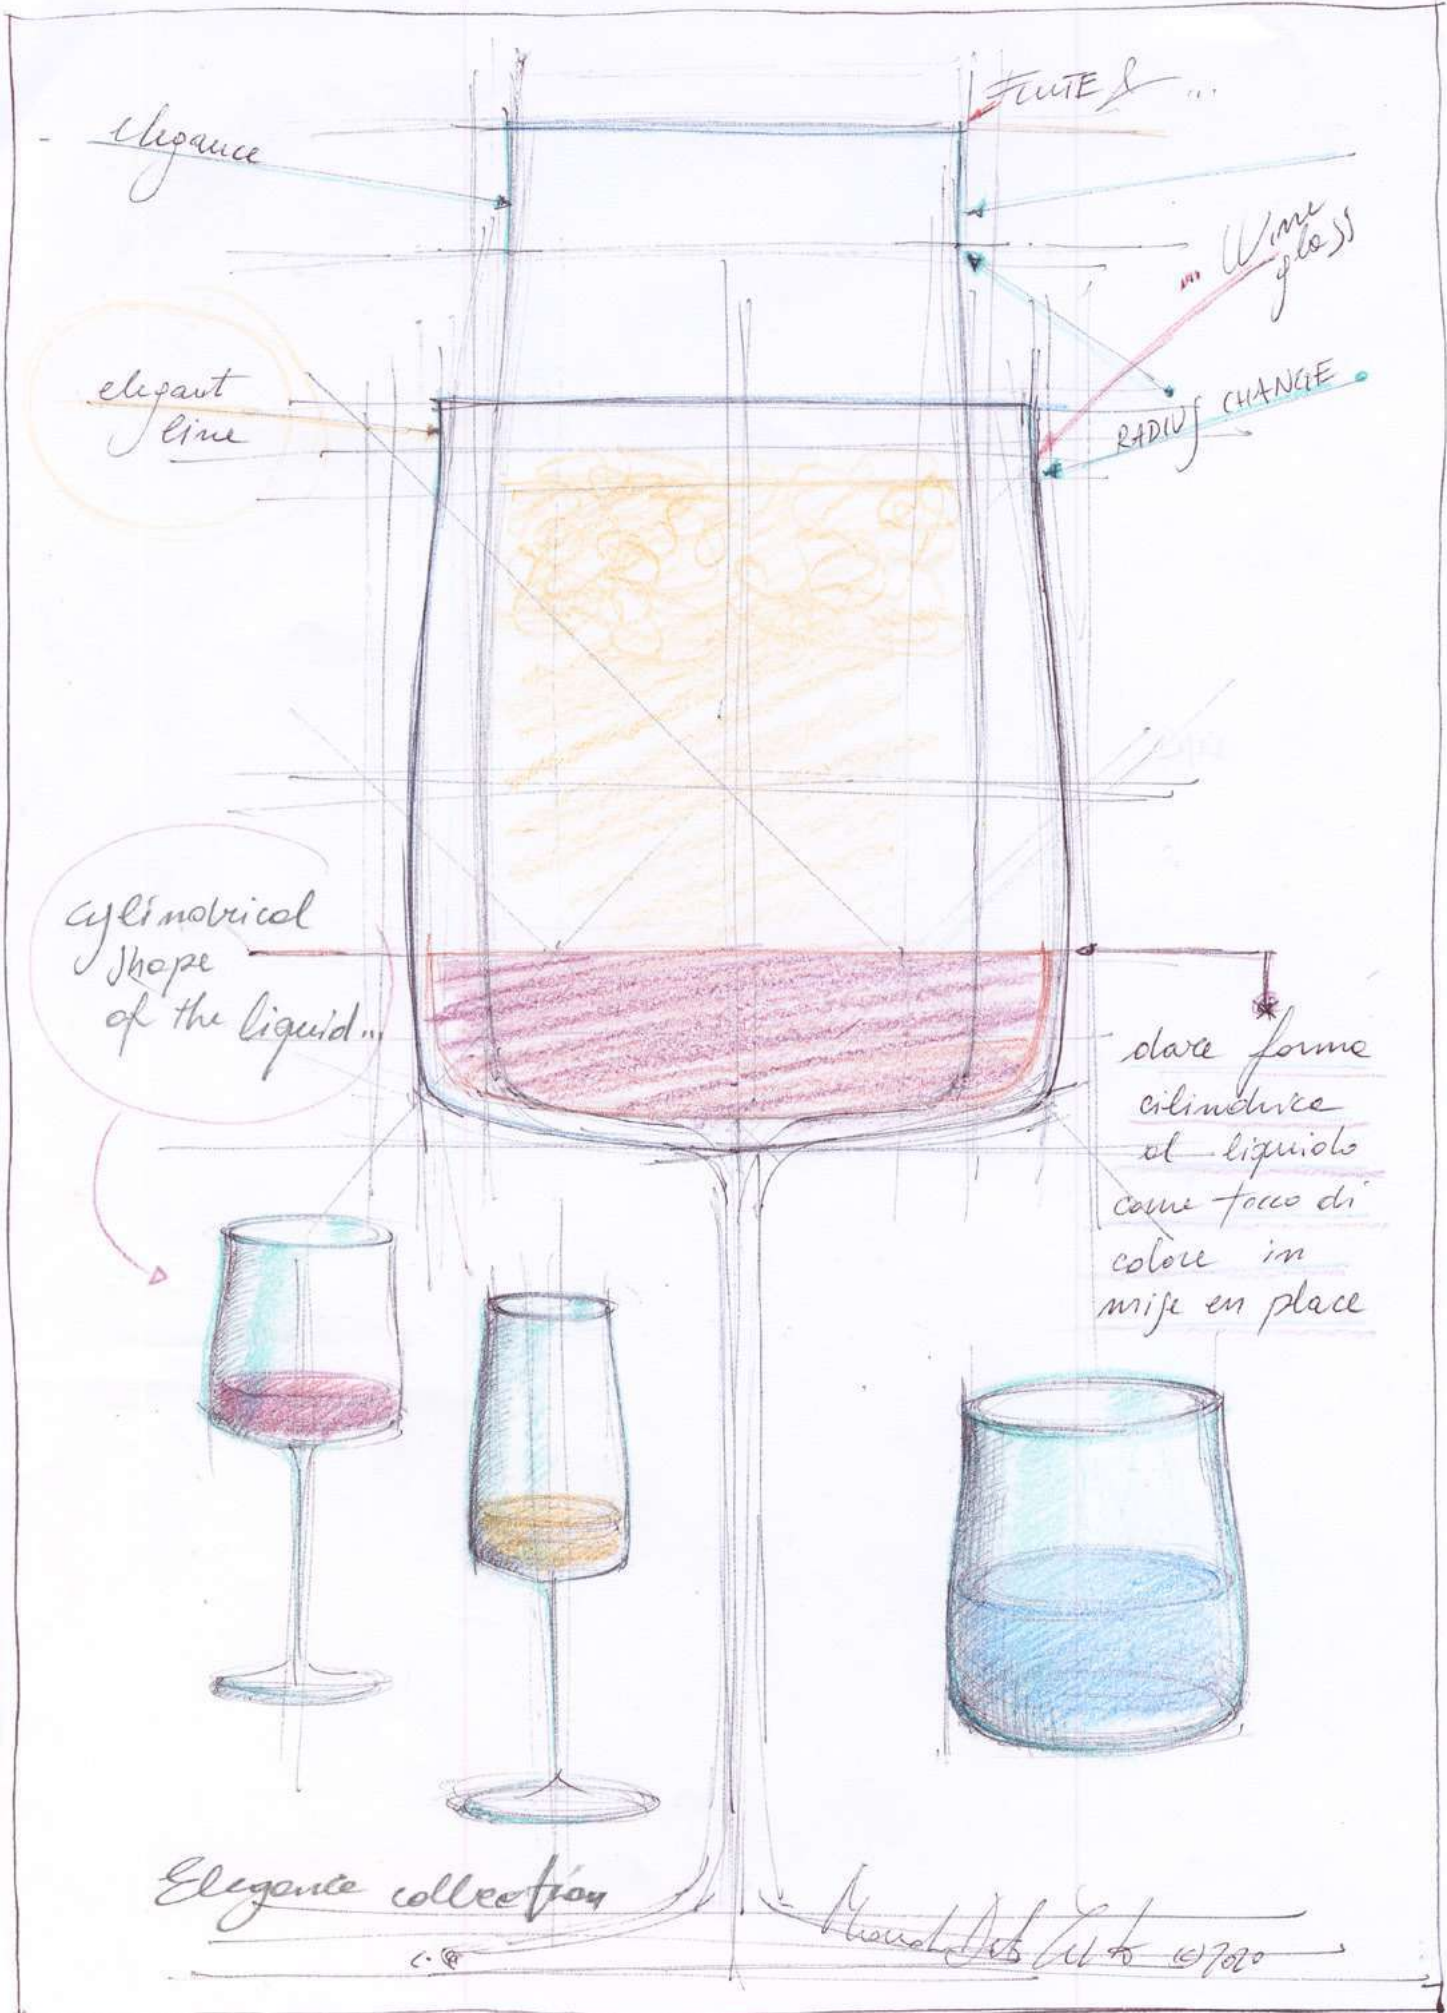 elegance
FLUTE & ...
... Wine
glass
elegant
line
RADIUS CHANGE
cylindrical
shape
of the liquid...
dare forma
cilindrica
al liquido
come tocco di
colore in
mise en place
Elegance collection
©2020